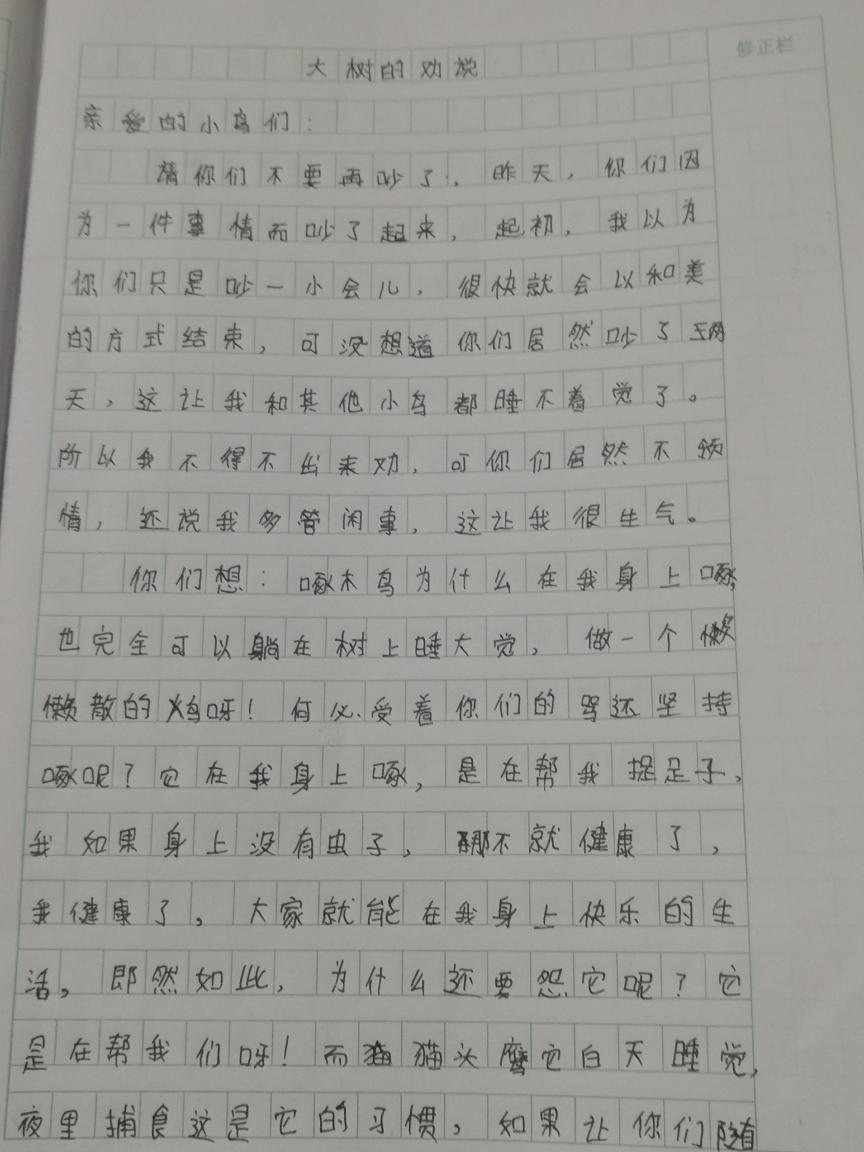 修正栏
大树的劝说
亲爱的小鸟们：
请你们不要再吵了，昨天，你们因
为一件事情而吵了起来，起初，我以为
你们只是吵一小会儿，很快就会以和美
的方式结束，可没想道你们居然吵了两
天，这让我和其他小鸟都睡不着觉了。
所以我不得不出来劝，可你们居然不领
情，还说我多管闲事，这让我很生气。
你们想：啄木鸟为什么在我身上啄，
也完全可以躺在树上睡大觉，做一个懒
懒散的鸟呀！何必受着你们的骂还坚持
啄呢？它在我身上啄，是在帮我捉足子，
我如果身上没有虫子，那不就健康了，
我健康了，大家就能在我身上快乐的生
活，即然如此，为什么还要怨它呢？它
是在帮我们呀！而猫头鹰它白天睡觉，
夜里捕食这是它的习惯，如果让你们随